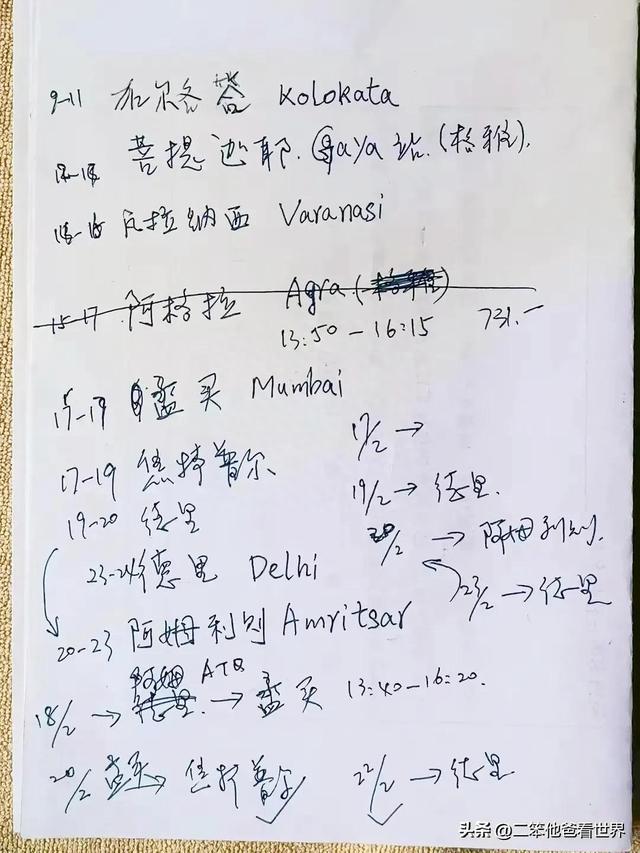 9-11 加尔各答 Kolokata
菩提迦耶. Gaya站.(格雅).
瓦拉纳西 Varanasi
15-17 阿格拉 Agra(
13:50-16:15 731.-
15-19 孟买 Mumbai
17/2→
17-19 焦特普尔
19/2→德里.
19-20 德里
20/2→阿姆利则.
23-24德里 Delhi
23/2→德里
20-23 阿姆利则 Amritsar
阿姆 ATQ
18/2→德里.→孟买 13:40-16:20.
20/2 孟买→焦特普尔 22/2→德里
头条 @二笨他爸看世界